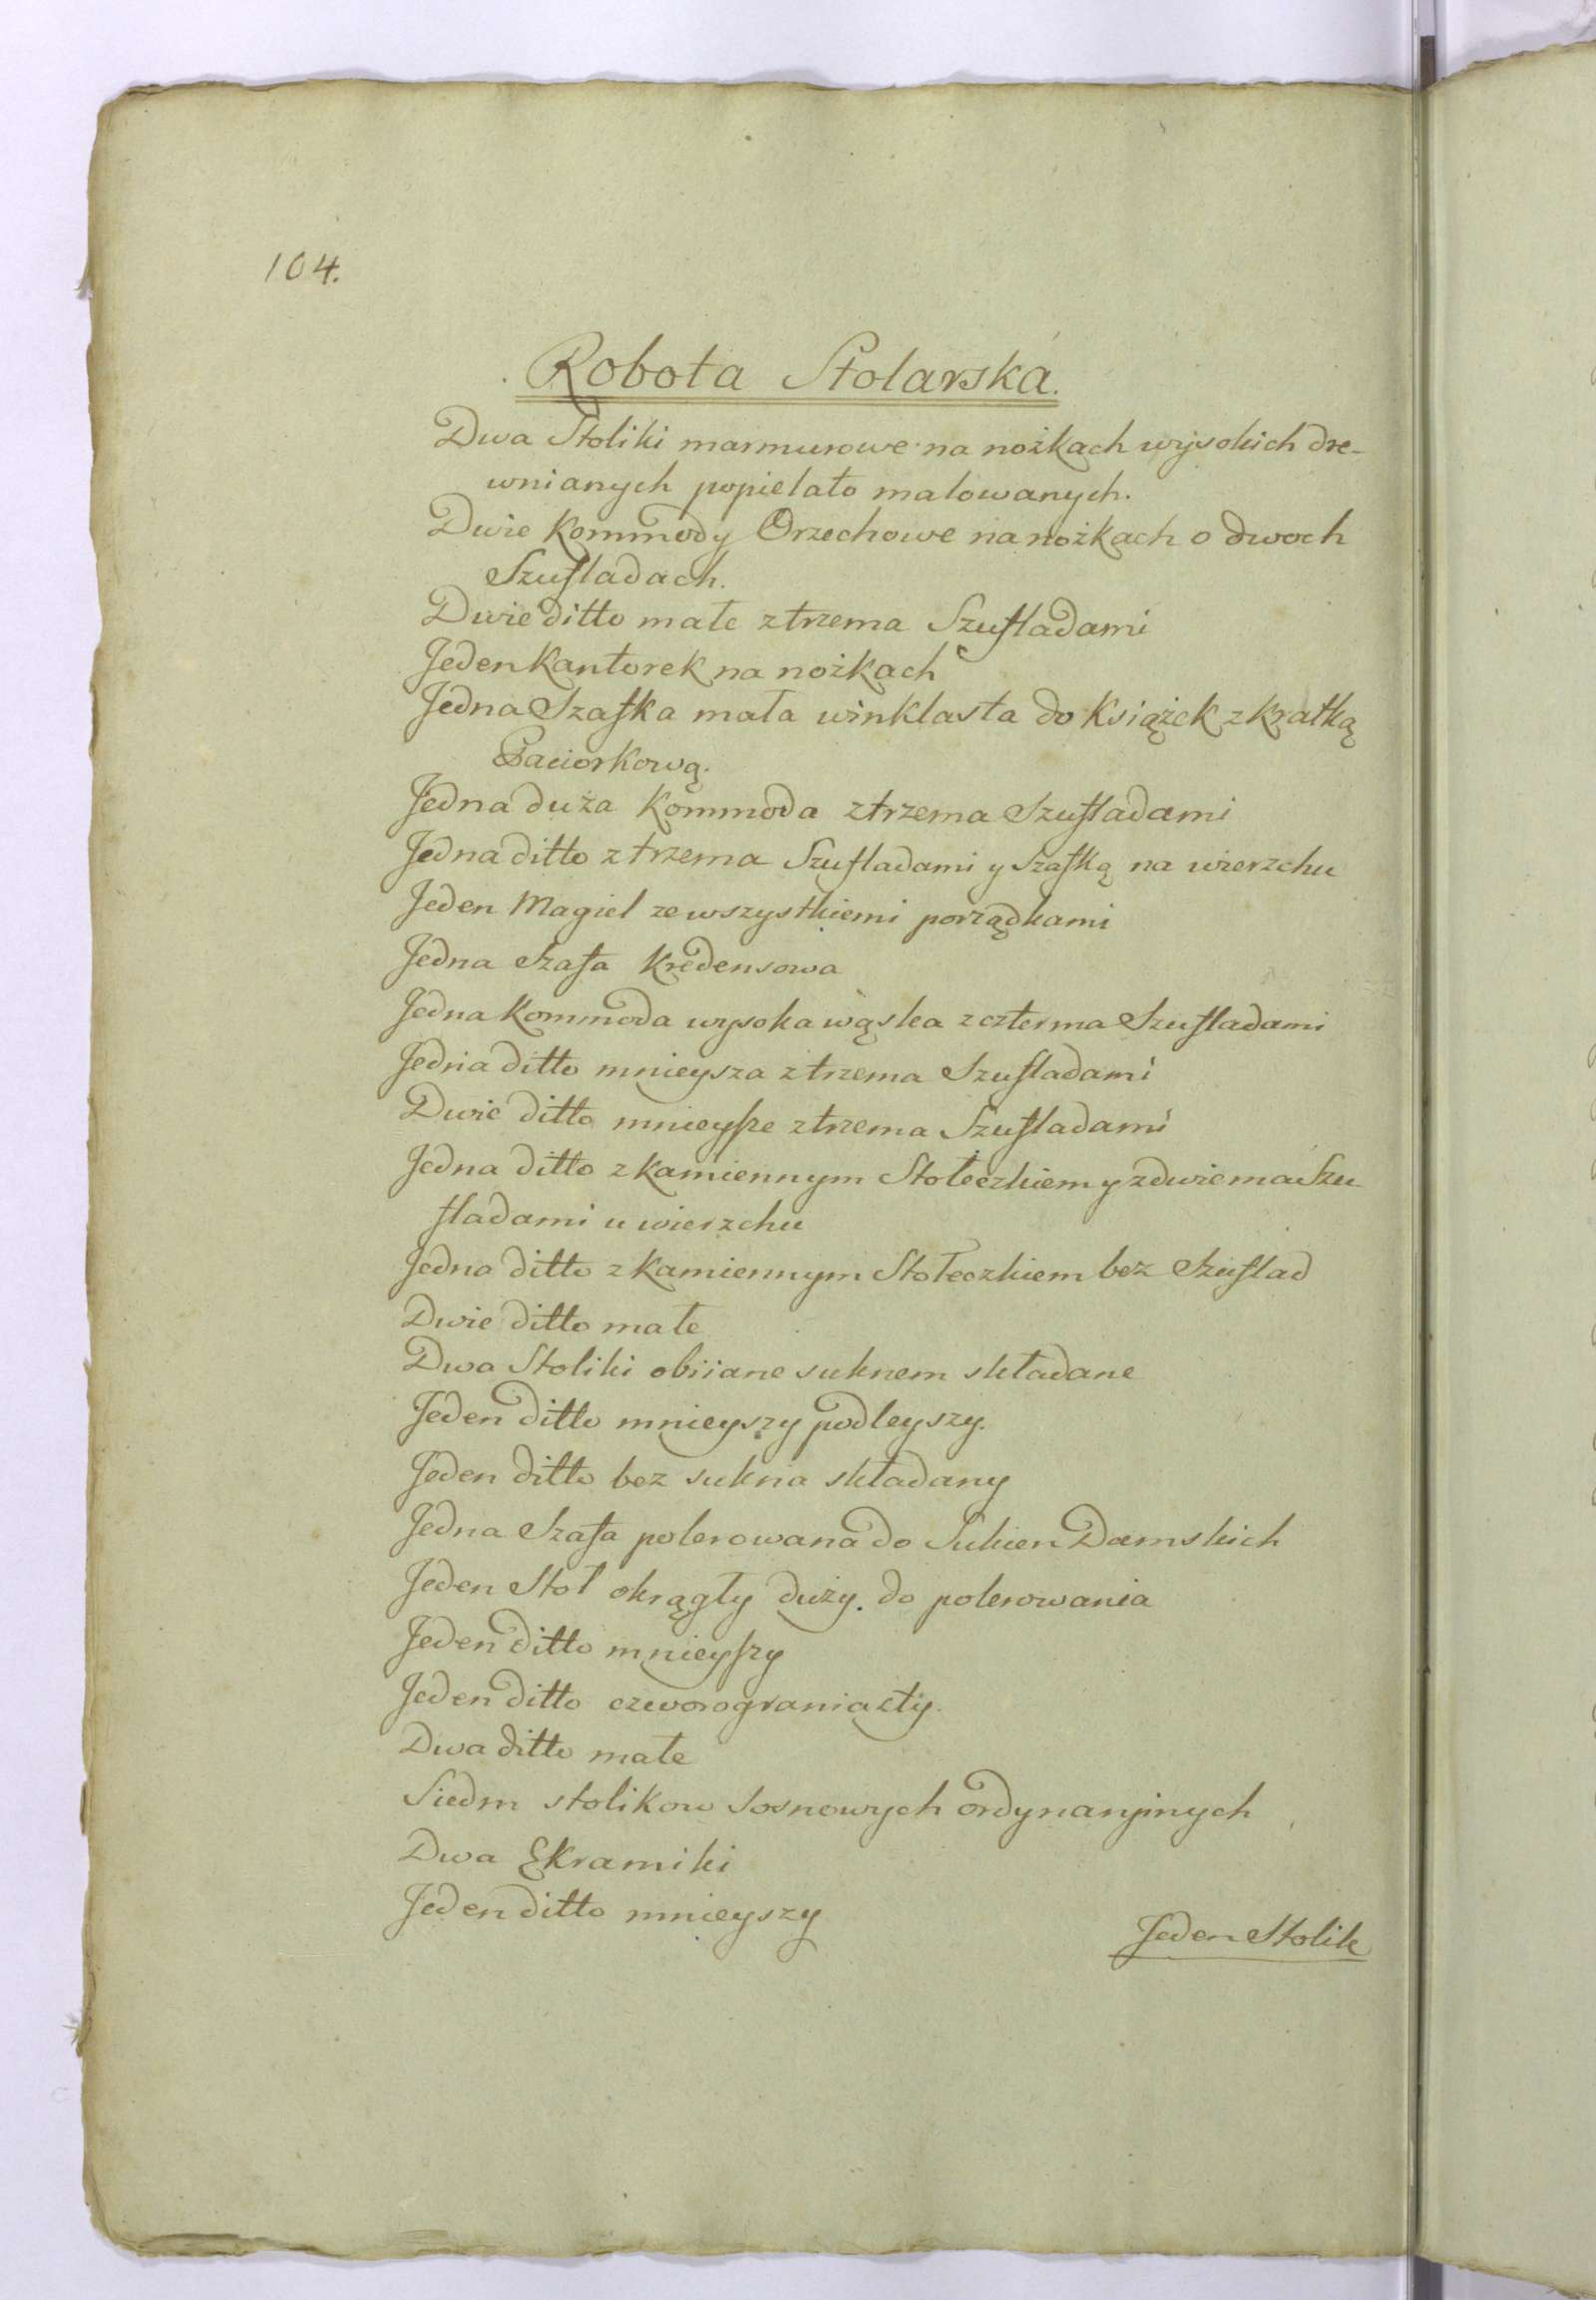 104.
Robota Stolarska.
Dwa Stoliki marmurowe na nożkach wysokich dre-
wnianych popielato malowanych.
Dwie Kommody Orzechowe na nożkach o dwoch
Szufladach.
Dwie ditto małe z trzema Szufladami
Jeden Kantorek na nożkach
Jedna Szafka mała winklasta do Książek z kratką
Paciorkową.
Jedna duża Kommoda z trzema Szufladami
Jedna ditto z trzema Szufladami y Szafką na wierzchu
Jeden Magiel ze wszystkiemi porządkami
Jedna Szafa Kredensowa
Jedna Kommoda wysoka wąska z czterma Szufladami
Jedna ditto mnieysza z trzema Szufladami
Dwie ditto mnieysze z trzema Szufladami
Jedna ditto z Kamiennym Stołeczkiem y z dwiema Szu-
fladami u wierzchu
Jedna ditto z Kamiennym Stołeczkiem bez Szuflad
Dwie ditto małe
Dwa Stoliki obiiane suknem składane
Jeden ditto mnieyszy podleyszy.
Jeden ditto bez sukna składany
Jedna Szafa polerowana do Sukien Damskich
Jeden Stoł okrągły duży do polerowania
Jeden ditto mnieyszy
Jeden ditto czworograniasty.
Dwa ditto małe
Siedm stolikow sosnowych ordynaryinych
Dwa Ekraniki
Jeden ditto mnieyszy
Jeden Stolik